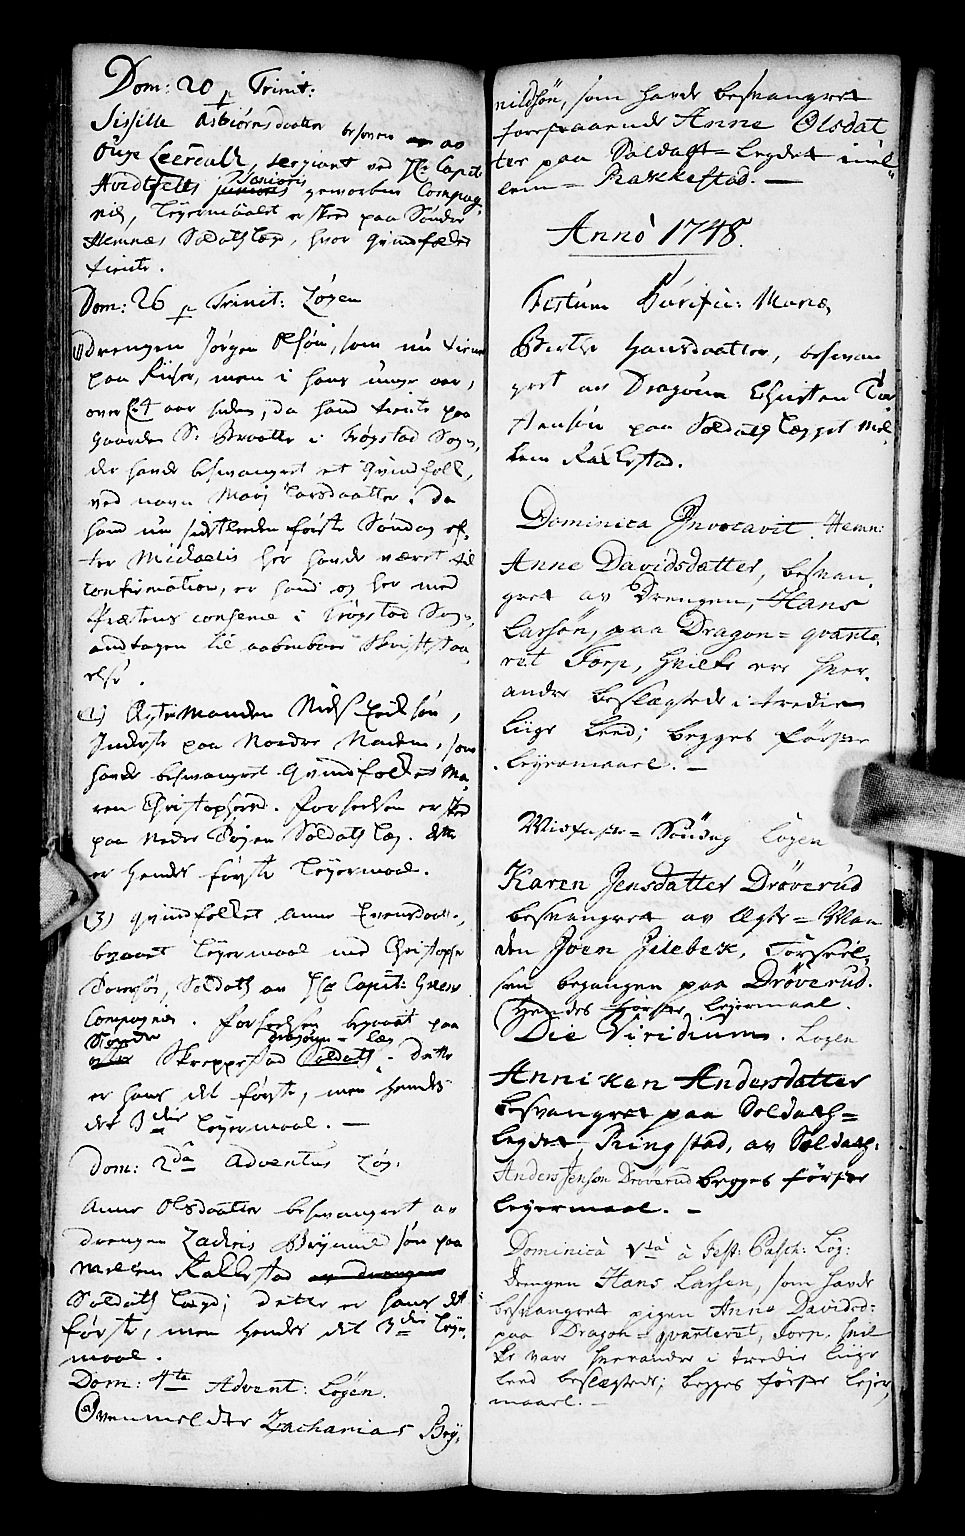 Dom: 20 p Trinit:
Sissille Asbiørnsdaatter besoven av
Sergiant ved Hr: Capit:
Senioris geworben Compag-
nie, Leyermaalet er skeed paa Søndre
Hemnæs Soldatslæg, hvor qvindfolket
tiente.
Dom: 26 p Trinit: Løgen
1) drengen Jørgen Olsøn, som nu tiener
paa men i hans unge aar,
over aar siden, da hand tiente paa
gaarden S: Braatte i Trøgstad Sogn,
der hande besvangret et qvindfolk,
ved navn Mari Larsdaatter; da
hand nu sidstleden første Søndag ef-
ter Michaelis her hande været til
confirmation, er hand og her med
Præstens consens i Trøgstad Sogn,
andtagen til aabenbare Skriftstaa-
else.
2) Ægte Manden Niels Erichsøn,
Inderste paa Nordre som
hande besvangret Qvindfolket Ma-
ren Christophersd. forseelsen er skeed
paa Nedre Soldats Læg. dette
er hendes første Leyermaal.
3) qvindfolket Anne Evensdaatt:,
begaaet Leyermaal med Christopher
Soldat av Hr Capit:
Compagnie. forseelsen begaaet paa
Søndre
Dragoun = læg
Skreppestad Soldats. dette
er hans det første, men hendes
det 3die Leyermaal. —
Dom: 2da Adventus Løg:
Anne Olsdaatter besvangret av
drengen søn paa
Mellem Rakkestad av drengen
Soldats Lægd; dette er hans det
første, men hendes det 3die Leyer-
maal.
Dom: 4te Advent: Løgen.
Ovenmeldte Zacharias Bøy,
nildsøn, som havde besvangret
forestaaende Anne Olsdat
ter paa Soldats= legdet mel
lem= Rakkestad. —
Anno 1748.
Festum Purific: Mariæ,
Berthe Hansdaatter, besvan
gret av Dragoun Christen Tor
stensøn paa Soldats Lægget Mel-
lem Rakkestad.
Dominica Invocavit. Hemn:
Anne Davidsdatter, besvan-
gret av Drengen, Hans
Larsøn, paa Dragon= qvarte-
ret Torp, hvilke ere hver-
andre beslægtede i tredie
liige Leed; begges første
Leyermaal. —
Midfaste= Søndag Løgen
Karen Jensdatter Drøverud
besvangret av Ægte= Man
den Joen Jilebek, Forseel-
sen begangen paa Drøverud.
Hendes første Leyermaal.
Die Viridium. Løgen
Anniken Andersdatter
besvangret paa Soldats=
legdet Ringstad, av Soldat:
Anders Jenson Drøverud begges første
Leyermaal. —
Dominicâ Vtâ à Fest: Pasch: Løg:
Drengen Hans Larsen, som havde
besvangret pigen Anne Davidsd:
paa Dragon= qvarteret, Torp, hvil
ke vare hverandre i tredie liige
leed beslægtede; begges første Leyer,
maael. —